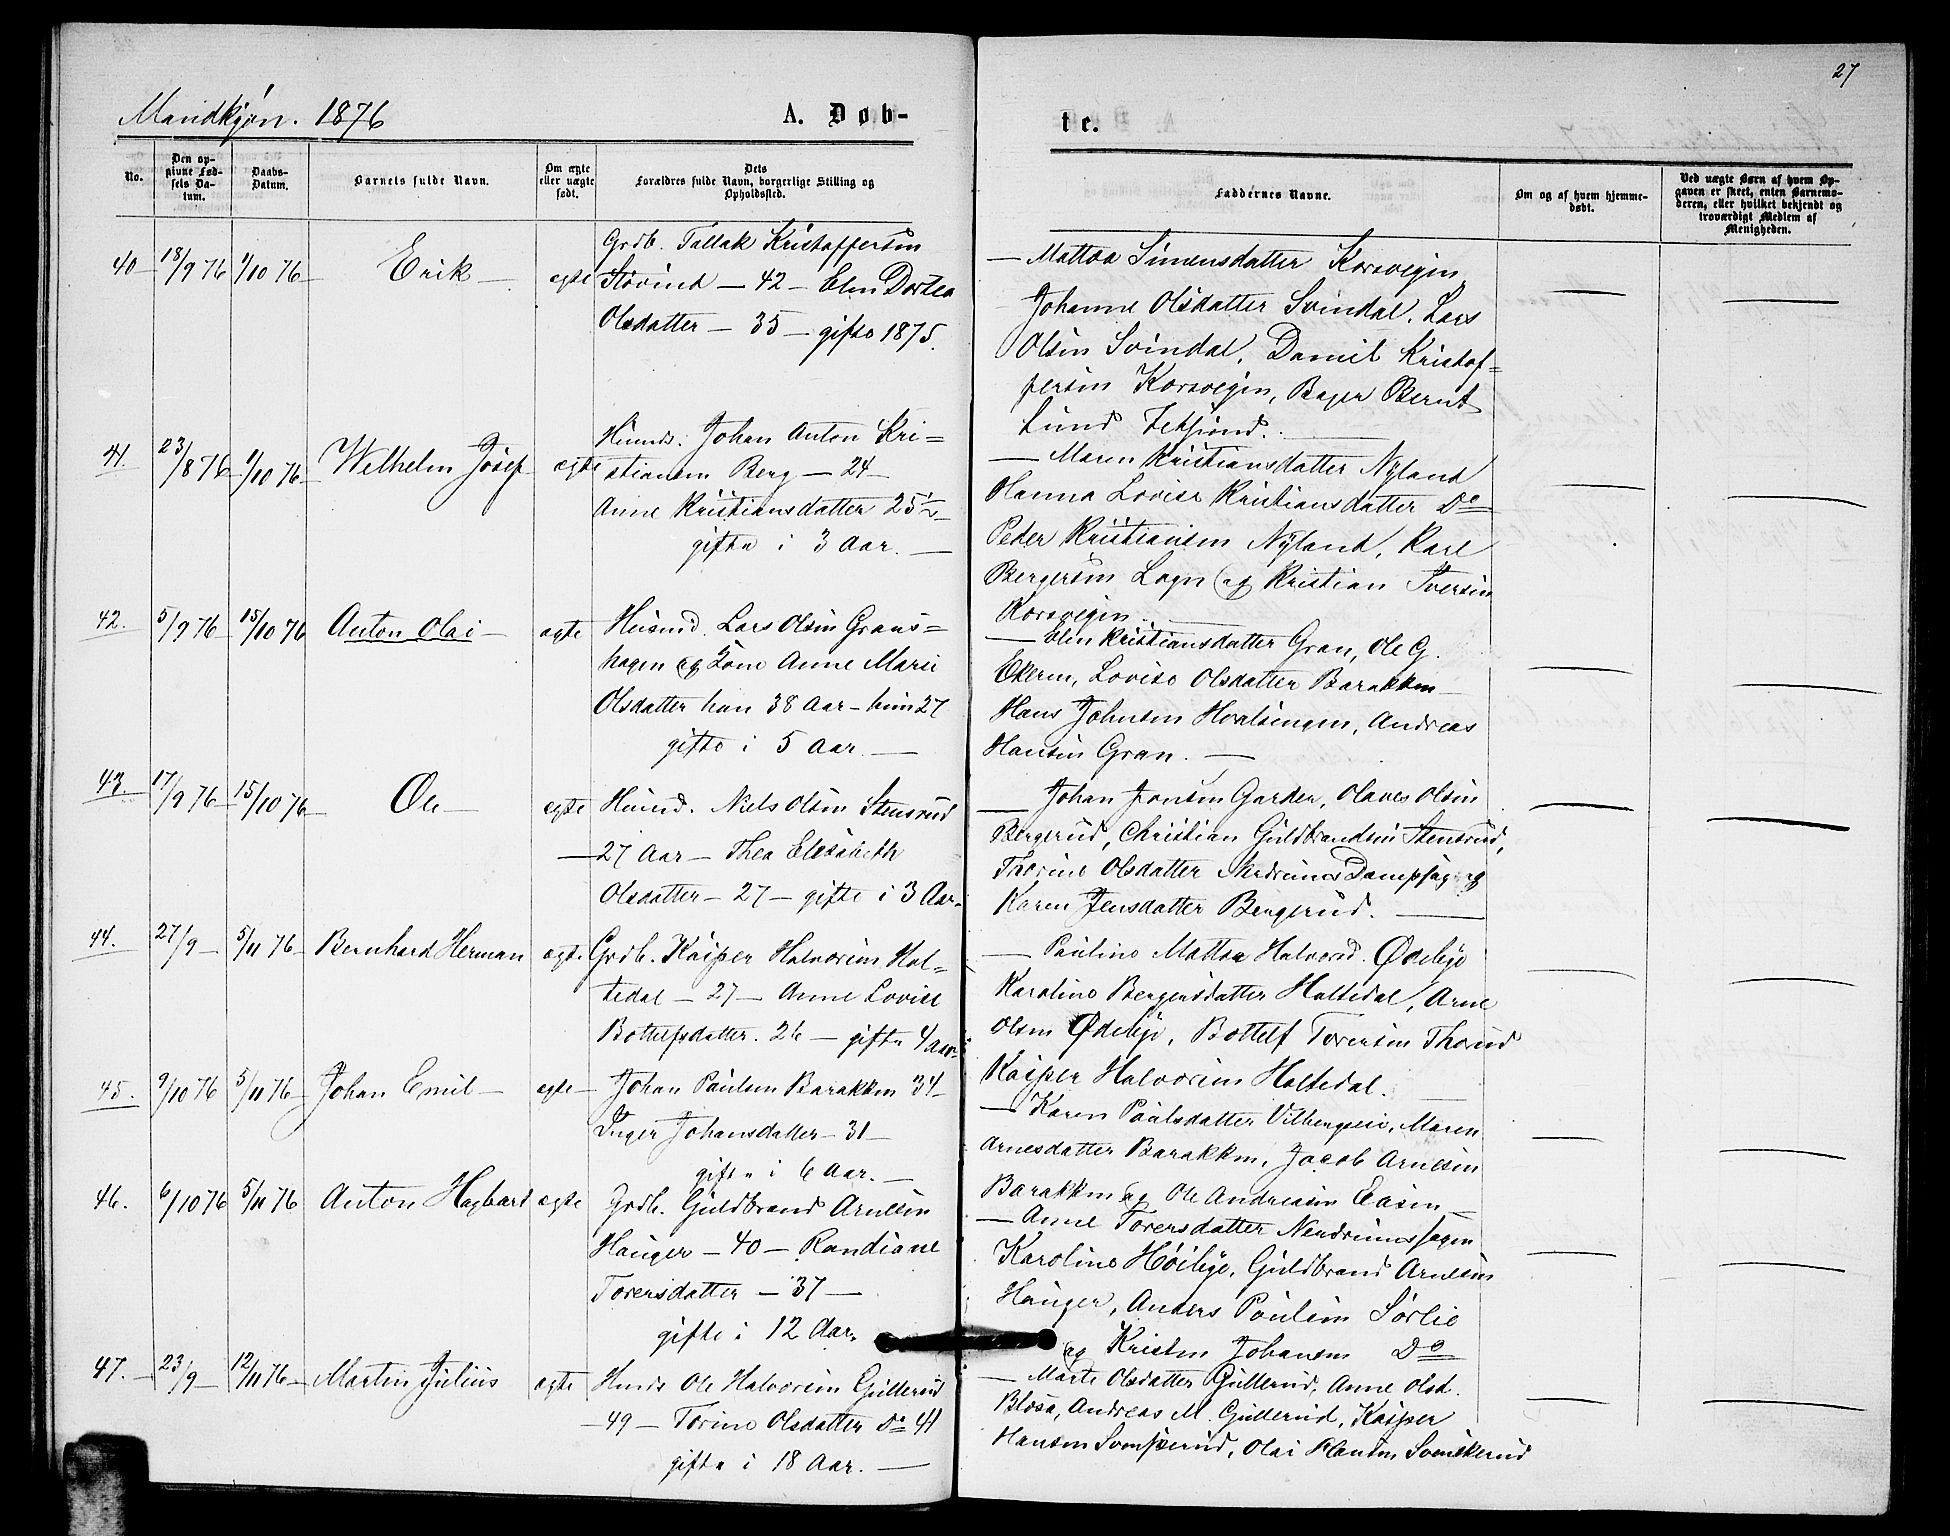 27
Mandkjøn. 1876
A. Døb-
te.
No.
Den op-
givne Fød-
sels Da-
tum.
Daabs-
Datum.
Barnets fulde Navn.
Om ægte
eller uægte
født.
Dets
Forældres fulde Navn, borgerlige Stilling og
Opholdssted.
Faddernes Navne.
Om og af hvem hjemme-
døbt.
Ved uægte Børn af hvem Op-
gaven er skeet, enten Barnemo-
deren, eller hvilket bekjendt og
troværdigt Medlem af
Menigheden.
40 — 18/9 76 1/10 76 — Erik — egte
Grdb. Tallak Kristoffersen
Støvind — 42 — Elen Dortea
Olsdatter — 35 — gifte 1875.
— Mattea Simensdatter Korsvegen
Johanne Olsdatter Svindal, Lars
Olsen Svindal, Daniel Kristof=
fersen Korsvegen, Bager Bernt
Lund
41. 23/8 76 1/10 76 — Wilhelm Josef — egte
Huusm. Johan Anton Kri=
stiansen Berg — 24 —
Anne Kristiansdatter 25½ —
gifte i 3 Aar. —
— Maren Kristiansdatter Nyland
Hanna Lovise Kristiansdatter Do
Peder Kristiansen Nyland, Karl
Bergersen Logn og Kristian Iversen
Korsvegen. —
42. 5/9 76 15/10 76 Anton Olai — egte
Huusmd. Lars Olsen Grans=
hagen og Kone Anne Marie
Olsdatter han 38 Aar — hun 27
gifte i 5 Aar. —
— Elen Kristiansdatter Gran, Ole G.
Ekeren, Lovise Olsdatter Barakken
Hans Johnsen Hvalsengen, Andreas
Hansen Gran. —
43. 17/9 76 15/10 76 Ole — egte
Huusmd. Niels Olsen Stensrud
— 27 Aar — Thea Elisabeth
Olsdatter — 27 — gifte i 3 Aar.
— Johan Jensen Garder, Olaves Olsen
Bergerud, Christian Guldbrandsen Stensrud,
Thorine Olsdatter Nerdrums Dampsag og
Karen Jensdatter Bergerud. —
44. 27/9 — 5/11 76 — Bernhard Herman egte
Grdb. Kasper Halvorsen Hol=
tedal — 27 — Anne Lovise
Bottelfsdatter. 26 — gifte 4 Aar
— Pauline Mattea Halvorsd. Ødeby
Karoline Bergersdatter Holtedal, Arne
Olsen Ødeby, Bottelf Toversen Thorud
Kasper Halvorsen Holtedal.
45. 9/10 76 5/11 76 — Johan Emil — egte —
Johan Paulsen Barakken 34 —
Inger Johansdatter — 31 —
gifte i 6 Aar. —
— Karen Paulsdatter Vilbergseie, Maren
Arnesdatter Barakken, Jacob Arnesen
Barakken og Ole Andreasen —
46. 6/10 76 5/11 76 Anton Hagbart egte
Grdb. Guldbrand Arnesen
Hauger — 40 — Randiane
Toversdatter — 37 —
gifte i 12 Aar.
— Anne Toversdatter Nerdrumssagen
Karoline Høiby, Guldbrand Arnesen
Hauger, Anders Paulsen Sørlie
og Kristen Johansen Do
47. — 23/9 — 12/11 76 — Martin Julius egte
Huusm. Ole Halvorsen Gullerud
— 49 — Torine Olsdatter Do 41
gifte i 18 Aar. —
— Marte Olsdatter Gullerud, Anne Olsd.
Blosa, Andreas M. Gullerud, Kasper
Hansen Svenskerud, Olai Hansen Svenskerud